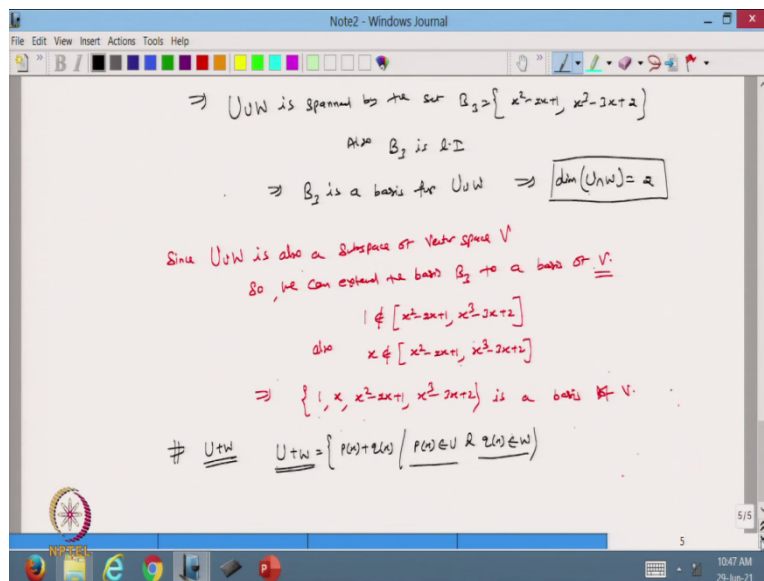 Note2 - Windows Journal
File Edit View Insert Actions Tools Help
B I
⇒ U∪W is spanned by the set B₃ = { x²-2x+1, x³-3x+2 }
Also B₃ is l.I
⇒ B₃ is a basis for U∪W ⇒ dim(U∩W) = 2
Since U∪W is also a subspace of vector space V
So, we can extend the basis B₃ to a basis of V.
1 ∉ [x²-2x+1, x³-3x+2]
also x ∉ [x²-2x+1, x³-3x+2]
⇒ { 1, x, x²-2x+1, x³-3x+2 } is a basis of V.
# U+W U+W = { p(x)+q(x) / p(x)∈U & q(x)∈W }
5/5
5
NPTEL
10:47 AM
29-Jun-21